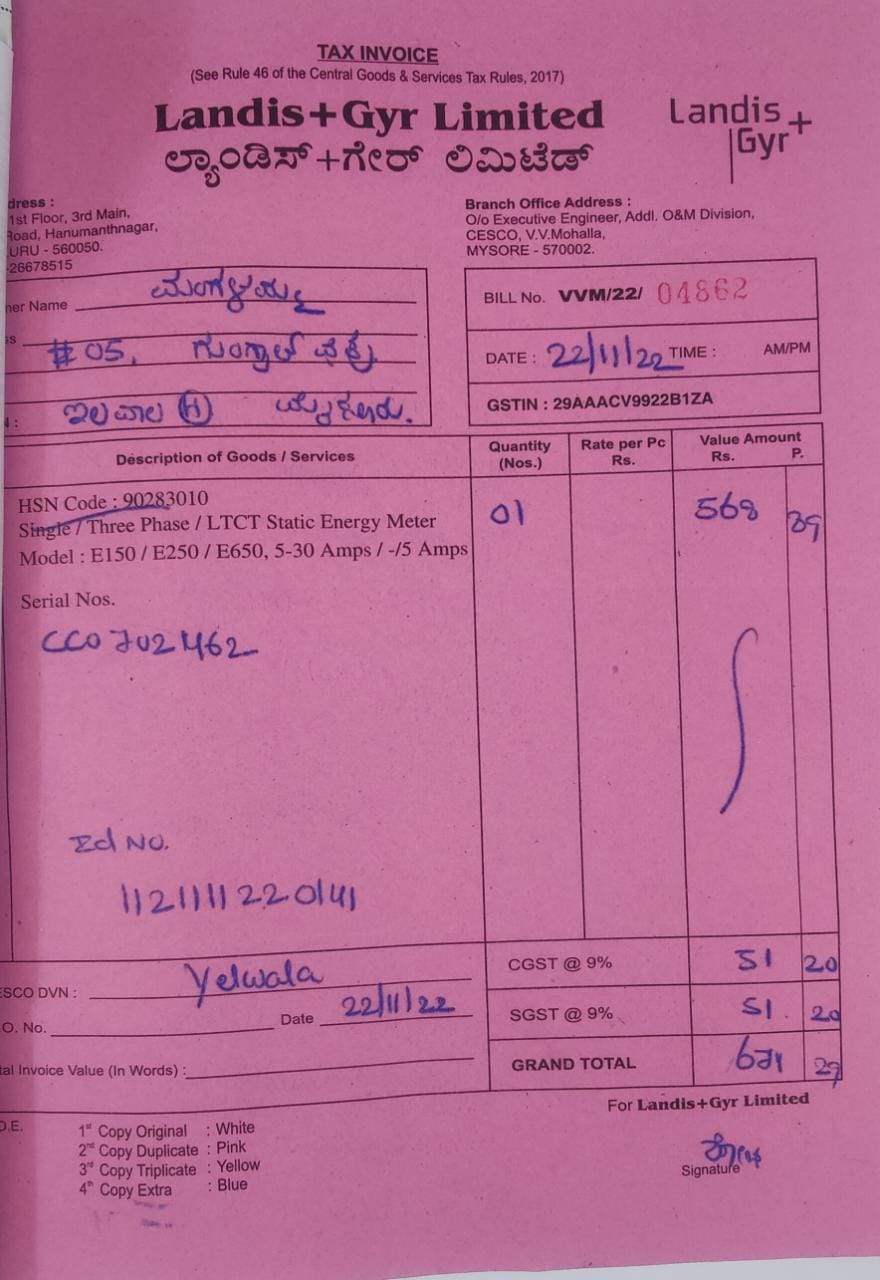 TAX INVOICE
(See Rule 46 of the Central Goods & Services Tax Rules, 2017)
Landis+Gyr Limited
ಲ್ಯಾಂಡಿಸ್+ಗೇರ್ ಲಿಮಿಟೆಡ್
Landis
Gyr+
dress :
1st Floor, 3rd Main,
Road, Hanumanthnagar,
URU - 560050.
26678515
Branch Office Address :
O/o Executive Engineer, Addl. O&M Division,
CESCO, V.V.Mohalla,
MYSORE - 570002.
ner Name
#05,
ಇಲವಾಲ (H) ಮೈಸೂರು.
BILL No. VVM/22/ 04862
DATE : 22/11/22 TIME : AM/PM
GSTIN : 29AAACV9922B1ZA
Description of Goods / Services
Quantity (Nos.)
Rate per Pc Rs.
Value Amount
Rs. P.
HSN Code : 90283010
Single / Three Phase / LTCT Static Energy Meter
01 568 89
Model : E150 / E250 / E650, 5-30 Amps / -/5 Amps
Serial Nos.
CC0702462
Id NO.
1121111220141
CGST @ 9% 51 20
ESCO DVN : Yelwala
SGST @ 9% 51. 20
O. No. Date 22/11/22
GRAND TOTAL 671 29
tal Invoice Value (In Words) :
For Landis+Gyr Limited
O.E.
1st Copy Original : White
2nd Copy Duplicate : Pink
3rd Copy Triplicate : Yellow
4th Copy Extra : Blue
Signature